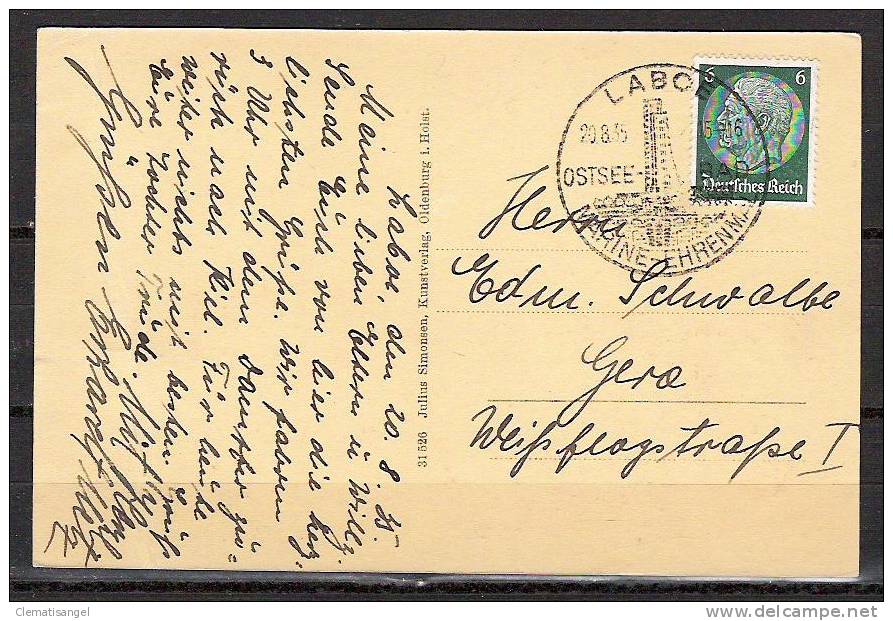 Laboe, den 20. 8. 35.
Meine lieben Eltern u. Willy.
Sende Euch von hier die herz-
lichsten Grüße. Wir fahren
3 Uhr mit dem Dampfer zu-
rück nach Kiel. Für heute
weiter nichts mit besten Gruß
Eure Tochter Trude.
Grüßen
31526 Julius Simonsen, Kunstverlag, Oldenburg i. Holst.
LABOE
20.8.35
OSTSEE-BAD
MARINE-EHRENMA
6 6
Deutsches Reich
Herrn
Edm. Schwalbe
Gera
Weißflogstraße I
Clematisangel
delcampe.net